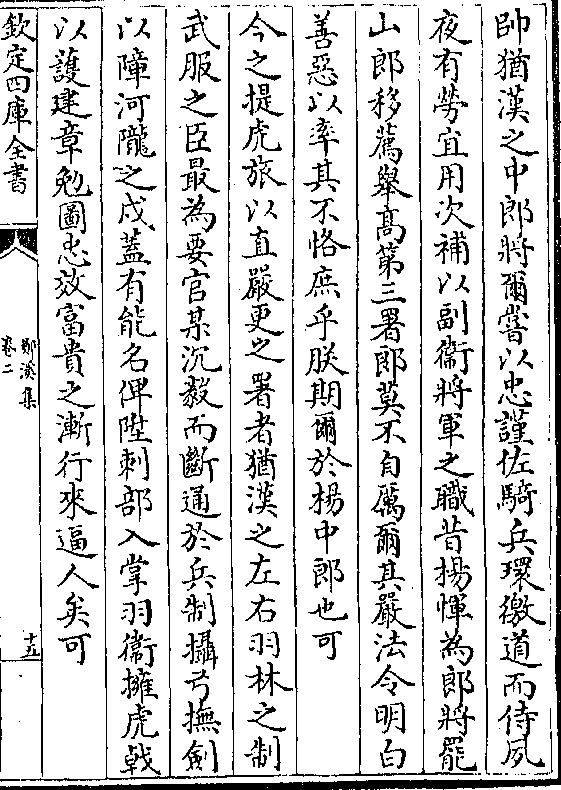 帥猶漢之中郎將爾嘗以忠謹佐騎兵環徼道而侍夙
夜有勞宜用次補以副衞將軍之職昔揚惲為郎將罷
山郎移薦舉髙第三署郎莫不自厲爾其嚴法令明白
善惡以率其不恪庶乎朕期爾於揚中郎也可
今之提虎旅以直嚴更之署者猶漢之左右羽林之制
武服之臣最為要官某沉毅而斷通於兵制攝弓撫劍
以障河隴之戍蓋有能名俾陞刺部入掌羽衞擁虎㦸
以䕶建章勉圖忠效富貴之漸行來逼人矣可
欽定四庫全書
鄖溪集
卷二
十五